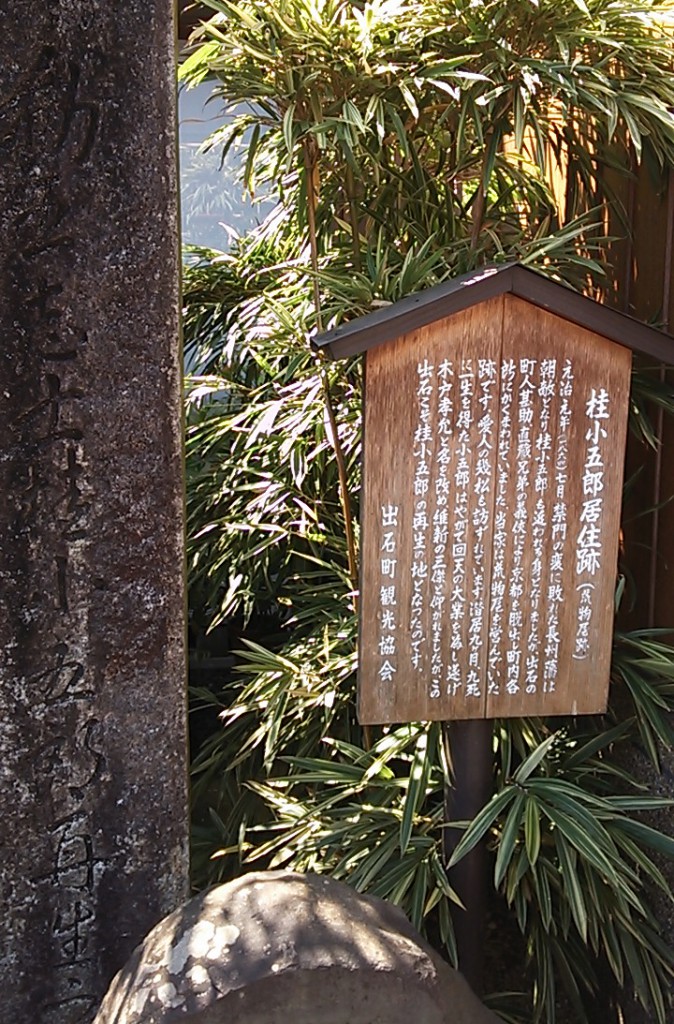 桂小五郎居住跡(荒物屋跡)
元治元年(一八六四)七月 禁門の変に敗れた長州藩は
朝敵となり桂小五郎も追われる身となりましたが、出石の
町人甚助、直蔵兄弟の義侠により京都を脱出し町内各
所にかくまわれていました。当家は荒物屋を営んでいた
跡です。愛人の幾松も訪ずれています。潜居九ヶ月、九死
に一生を得た小五郎はやがて回天の大業を為し遂げ
木戸孝允と名を改め維新の三傑と仰がれましたが、この
出石こそ桂小五郎の再生の地となったのです。
出石町観光協会
勤王志士桂小五郎再生之